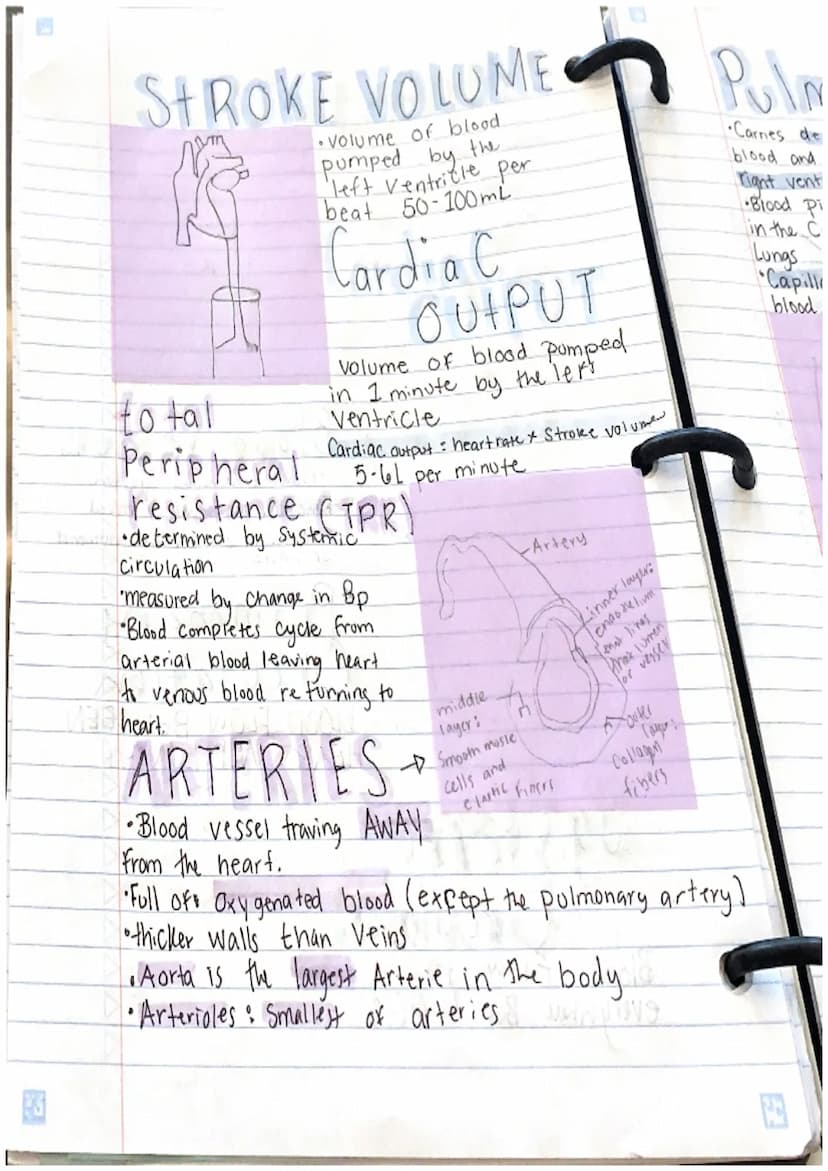 StROKE VOLUME
• volume of blood
pumped by the
left ventricle per
beat 50-100mL
Cardiac
OUtPUT
volume of blood pumped
in 1 minute by the left
ventricle
Cardiac output = heart rate x Stroke volume
5-6L per minute
total
Peripheral
resistance (TPR)
•determined by systemic
circulation
•measured by change in Bp
•Blood completes cycle from
arterial blood leaving heart
to venous blood returning to
heart.
Artery
inner layer:
endothelium
that lines
the lumen
of vessel
middle
layer:
Smooth muscle
cells and
elastic fibers
outer
layer:
Collagen
fibers
ARTERIES →
•Blood vessel traving AWAY
from the heart.
•Full of: Oxygenated blood (except the pulmonary artery)
•thicker walls than veins
•Aorta is the largest Arterie in the body
•Arterioles: Smallest of arteries
Pulm
•Carries de
blood and
right vent
•Blood pi
in the C
Lungs
•Capill
blood